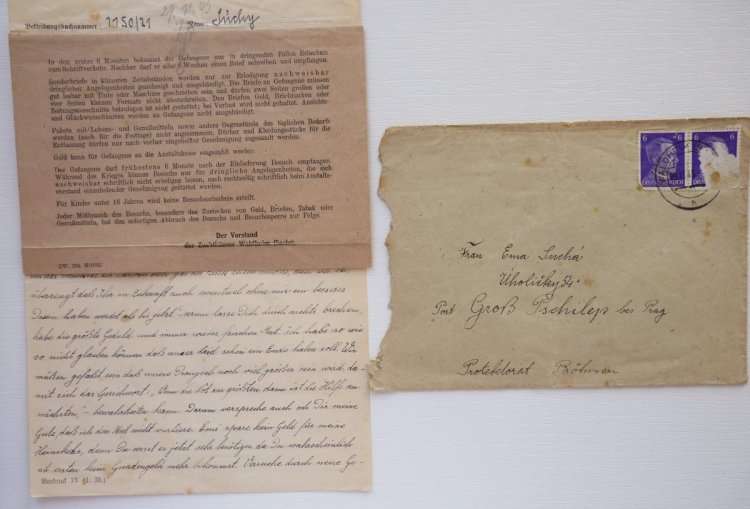 Bekleidungsbuchnummer: 1150/21 Name: Suchy
In den ersten 6 Monaten bekommt der Gefangene nur in dringenden Fällen Erlaubnis
zum Schriftverkehr. Nachher darf er alle 6 Wochen einen Brief schreiben und empfangen.
Sonderbriefe in kürzeren Zeitabständen werden nur zur Erledigung nachweisbar
dringlicher Angelegenheiten genehmigt und ausgehändigt. Die Briefe an Gefangene müssen
gut lesbar mit Tinte oder Maschine geschrieben sein und dürfen zwei Seiten großen oder
vier Seiten kleinen Formats nicht überschreiten. Den Briefen Geld, Briefmarken oder
Zeitungsausschnitte beizulegen ist nicht gestattet; bei Verlust wird nicht gehaftet. Ansichts-
und Glückwunschkarten werden an Gefangene nicht ausgehändigt.
Pakete mit Lebens- und Genußmitteln sowie andere Gegenstände des täglichen Bedarfs
werden (auch für die Festtage) nicht angenommen, Bücher und Kleidungsstücke für die
Entlassung dürfen nur nach vorher eingeholter Genehmigung zugesandt werden.
Geld kann für Gefangene an die Anstaltskasse eingezahlt werden.
Der Gefangene darf frühestens 6 Monate nach der Einlieferung Besuch empfangen.
Während des Krieges können Besuche nur für dringliche Angelegenheiten, die sich
nachweisbar schriftlich nicht erledigen lassen, nach rechtzeitig schriftlich beim Anstalts-
vorstand einzuholender Genehmigung gestattet werden.
Für Kinder unter 16 Jahren wird keine Besuchserlaubnis erteilt.
Jeder Mißbrauch des Besuchs, besonders das Zustecken von Geld, Briefen, Tabak oder
Genußmitteln, hat den sofortigen Abbruch des Besuchs und Besuchssperre zur Folge.
Der Vorstand
des Zuchthauses Waldheim (Sachs).
überzeugt daß Ihr in Zukunft auch eventuell ohne mir ein besseres
Dasein haben werdet als bis jetzt. Darum lasse Dich durch nichts brechen,
habe die größte Geduld und immer wieder frischen Mut. Ich habs so wie
so nicht glauben können daß unser Leid schon ein Ende haben soll. Wir
müßen gefaßt sein daß unsere Drangsale noch viel größer sein wird, da-
mit sich das Sprichwort: „Wenn die Not am größten, dann ist die Hilfe am
nächsten", - bewahrheiten kann. Darum verspreche auch ich Dir meine
Gute, daß ich den Mut nicht verliere. Emi spare kein Geld für meine
Heimkehr, denn Du wirst es jetzt sehr benötigen da Du wahrscheinlich
ab ersten kein Gnadengeld mehr bekommst. Versuche durch neue Ge-
Vordruck 13 (1. 35.)
6 6
DEUTSCHES REICH
Frau Ema Suchá
Uholičky 54.
Post Groß Pschilep bei Prag
Protektorat Böhmen